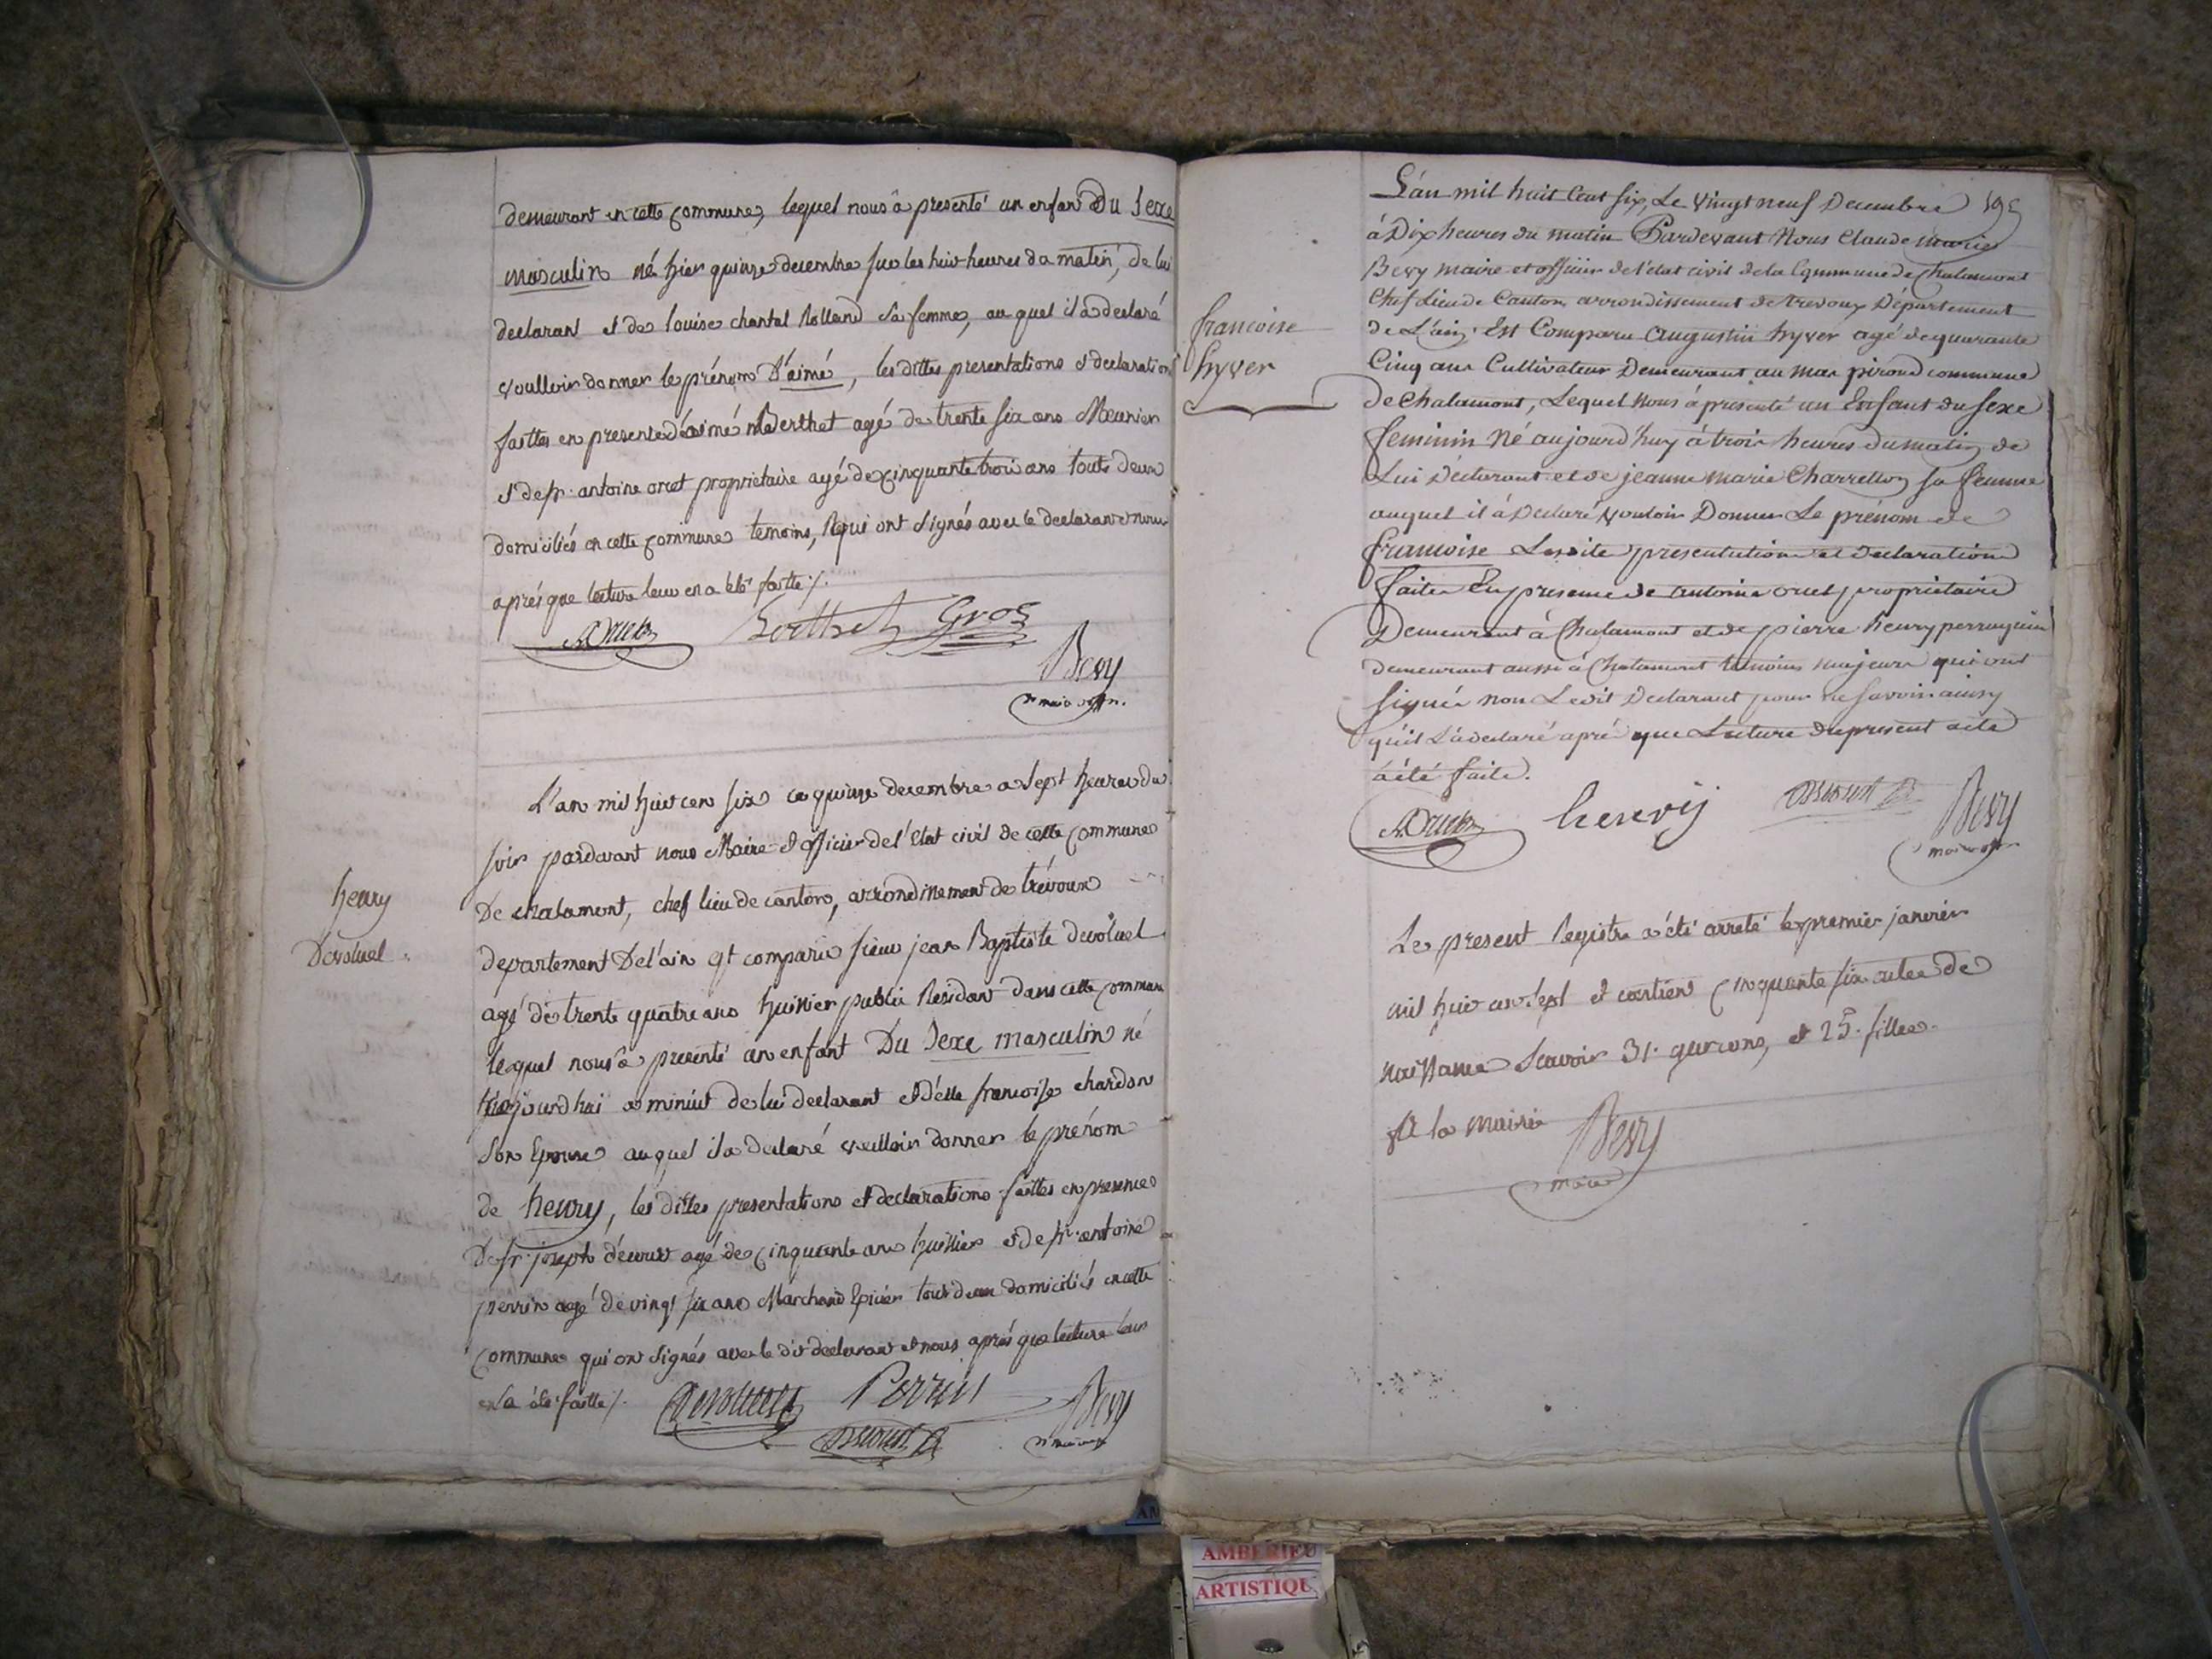 demeurant en cette commune, lequel nous à presenté un enfant Du Sexe
masculin né hier quinze decembre sur les huit heures da matin, de lui
declarant et de louise chantal Rolland sa femme, au quel il à declaré
voulloir donner le prénom D'aimé, les dittes presentations et declarations
faittes en presence d'aimé Berthet agé de trente six ans Meunier
et de fr. antoine orcet proprietaire agé de cinquante trois ans touts deux
domiciliés en cette commune temoins, qui ont signés avec le declarant et nous
aprés que lecture leur en a été faitte ./.
Berthet Gros
Bevy
maire
L'an mil huit cen six ce quinze decembre a sept heures du
soir pardavant nous Maire et officier de l'Etat civil de cette commune
De chalamont, chef lieu de canton, arrondissement de trévoux
departement De l'ain est comparu sieur jean Baptiste devoluet
agé de trente quatre ans huissier public Residant dans cette commune
lequel nous à presenté un enfant Du Sexe masculin né
aujourd hui a minuit de lui declarant et d'elle francoise chardon
Son Epouse auquel il a declaré veulloir donner le prénom
de henry, les dittes presentations et declarations faittes en presence
De fr. joseph agé de cinquante ans huissier et de fr. antoine
perrin agé de vingt six ans Marchand Epicier tous deux domiciliés en cette
commune qui ont signés avec le dit declarant et nous aprés que lecture leur
en a été faitte ./.
Devoluet Perrin Bevy
maire
henry
Devoluet
195
L'an mil huit Cent six, Le vingt neuf Decembre
à Dix heures du matin Pardevant Nous Claude Marie
Bévy maire et officier de l'état civil de la Commune de Chalamont
Chef Lieu de Canton, arrondissement de trevoux Département
de L'ain; Est Comparu Augustin hyver agé de quarante
Cinq ans Cultivateur Demeurant au mas pirond commune
de Chalamont, Lequel Nous à presenté un Enfant du Sexe
feminin Né aujourd'huy à trois heures du matin de
Lui Déclarant et de jeanne marie Charrellon sa femme
auquel il à Declaré vouloir Donner Le prénom de
francoise Lesdite presentation et declaration
faite En presence de antoine orcet proprietaire
Demeurant à Chalamont et de pierre henry perruquier
demeurant aussi à Chalamont temoins majeurs qui ont
signés non Ledit Declarant pour ne savoir ainsy
qu'il L'a declaré apré que Lecture du present acte
à été faite.
henry Bevy
maire
francoise
hyver
Le present Registre a été arreté le premier janvier
mil huit cen sept et contient cinquante six actes de
naissance Scavoir 31. garcons, et 25. filles.
A la mairie Bevy
maire
AMBERIEU
ARTISTIQUE